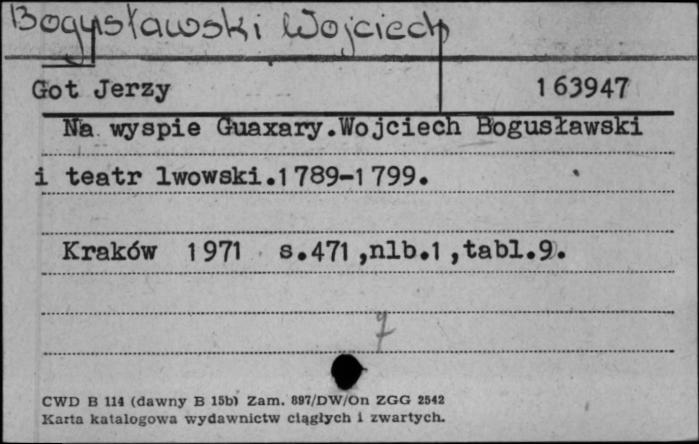 Bogusławski Wojciech
Got Jerzy 163947
Na wyspie Guaxary.Wojciech Bogusławski
i teatr lwowski.1789-1799.
Kraków 1971 s.471,nlb.1,tabl.9.
CWD B 114 (dawny B 15b) Zam. 897/DW/On ZGG 2542
Karta katalogowa wydawnictw ciągłych i zwartych.